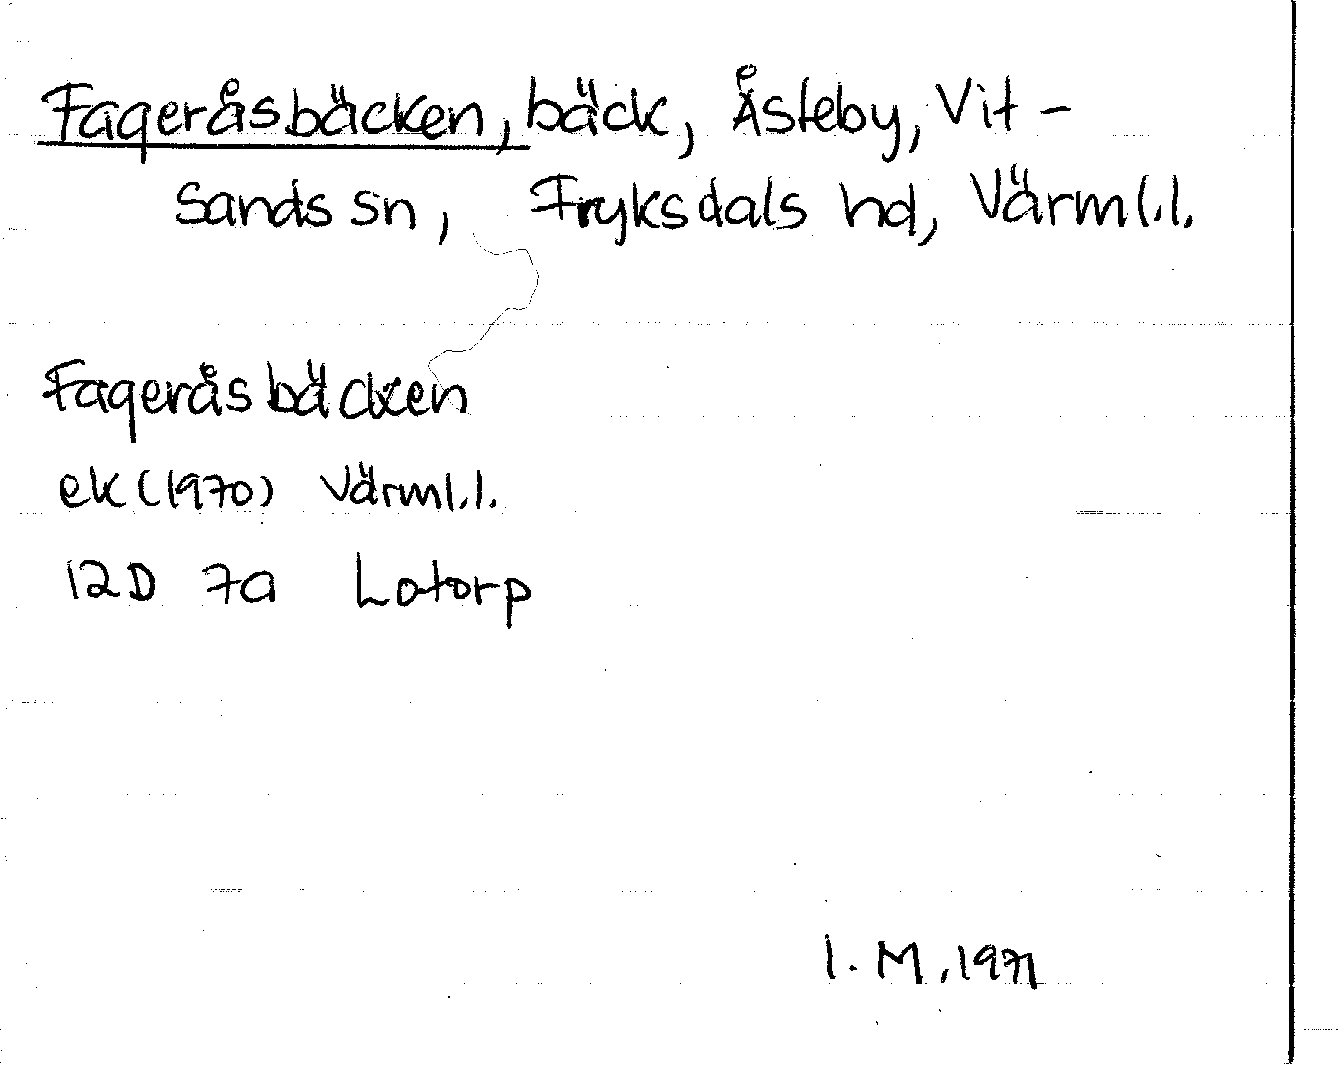 Fageråsbäcken, bäck, Åsteby, Vit-
sands sn, Fryksdals hd, Värml.l.
Fageråsbäcken
ek (1970) Värml.l.
12D 7a Lotorp
I. M, 1971